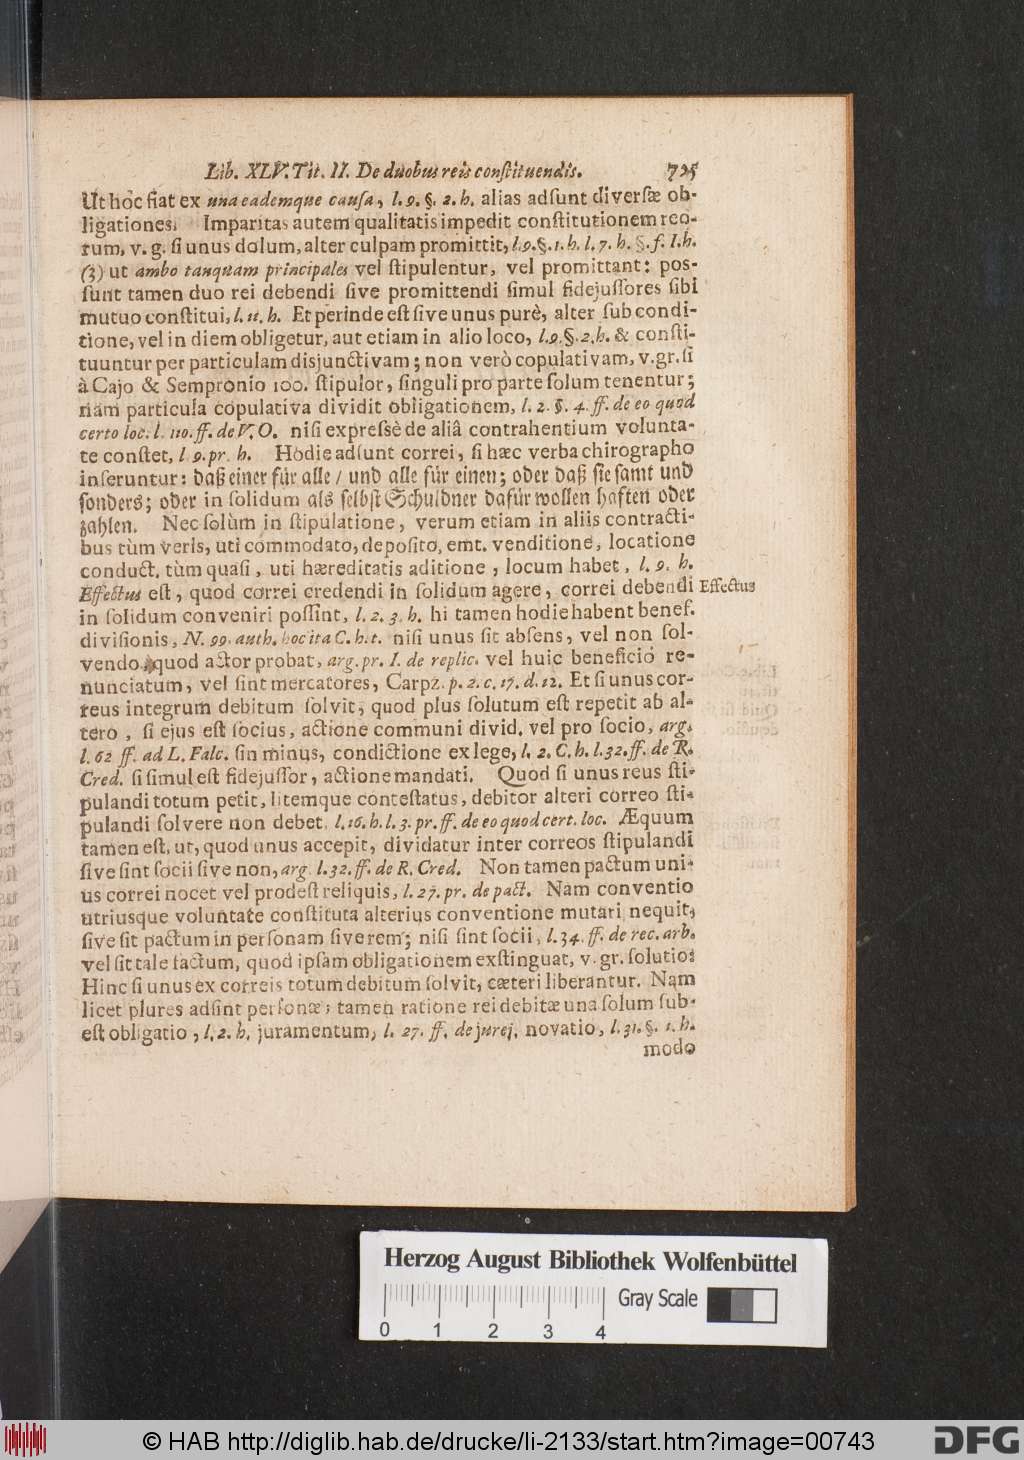 Lib. XLV. Tit. II. De duobus reis conſtituendis. 725
Ut hoc fiat ex una eademque cauſa, l. 9. §. 2. h. alias adſunt diverſæ ob-
ligationes. Imparitas autem qualitatis impedit conſtitutionem reo-
rum, v. g. ſi unus dolum, alter culpam promittit, l. 9. §. 1. h. l. 7. h. §. f. I. h.
(3) ut ambo tanquam principales vel ſtipulentur, vel promittant: poſ-
ſunt tamen duo rei debendi ſive promittendi ſimul fidejuſſores ſibi
mutuo conſtitui, l. 11. h. Et perinde eſt ſive unus purè, alter ſub condi-
tione, vel in diem obligetur, aut etiam in alio loco, l. 9. §. 2. h. & conſti-
tuuntur per particulam disjunctivam; non verò copulativam, v. gr. ſi
à Cajo & Sempronio 100. ſtipulor, ſinguli pro parte ſolum tenentur;
nam particula copulativa dividit obligationem, l. 2. §. 4. ff. de eo quod
certo loc. l. 110. ff. de V. O. niſi expreſsè de aliâ contrahentium volunta-
te conſtet, l 9. pr. h. Hodie adſunt correi, ſi hæc verba chirographo
inſeruntur: daß einer für alle / und alle für einen; oder daß ſie ſamt und
ſonders; oder in ſolidum als ſelbſt Schuldner dafür wollen haften oder
zahlen. Nec ſolùm in ſtipulatione, verum etiam in aliis contracti-
bus tùm veris, uti commodato, depoſito, emt. venditione, locatione
conduct. tùm quaſi, uti hæreditatis aditione, locum habet, l. 9. h.
Effectus eſt, quod correi credendi in ſolidum agere, correi debendi Effectus
in ſolidum conveniri poſſint, l. 2. 3. h. hi tamen hodie habent benef.
diviſionis, N. 99. auth. hoc ita C. h. t. niſi unus ſit abſens, vel non ſol-
vendo, quod actor probat, arg. pr. I. de replic. vel huic beneficio re-
nunciatum, vel ſint mercatores, Carpz. p. 2. c. 17. d. 12. Et ſi unus cor-
reus integrum debitum ſolvit, quod plus ſolutum eſt repetit ab al-
tero, ſi ejus eſt ſocius, actione communi divid. vel pro ſocio, arg.
l. 62 ff. ad L. Falc. ſin minus, condictione ex lege, l. 2. C. h. l. 32. ff. de R.
Cred. ſi ſimul eſt fidejuſſor, actione mandati. Quod ſi unus reus ſti-
pulandi totum petit, litemque conteſtatus, debitor alteri correo ſti-
pulandi ſolvere non debet, l. 16. h. l. 3. pr. ff. de eo quod cert. loc. Æquum
tamen eſt, ut, quod unus accepit, dividatur inter correos ſtipulandi
ſive ſint ſocii ſive non, arg. l. 32. ff. de R. Cred. Non tamen pactum uni-
us correi nocet vel prodeſt reliquis, l. 27. pr. de pact. Nam conventio
utriusque voluntate conſtituta alterius conventione mutari nequit,
ſive ſit pactum in perſonam ſive rem; niſi ſint ſocii, l. 34. ff. de rec. arb.
vel ſit tale factum, quod ipſam obligationem exſtinguat, v. gr. ſolutio:
Hinc ſi unus ex correis totum debitum ſolvit, cæteri liberantur. Nam
licet plures adſint perſonæ; tamen ratione rei debitæ una ſolum ſub-
eſt obligatio, l. 2. h. juramentum, l. 27. ff. de jurej. novatio, l. 31. §. 1. h.
modo
Herzog August Bibliothek Wolfenbüttel
Gray Scale
0 1 2 3 4
© HAB http://diglib.hab.de/drucke/li-2133/start.htm?image=00743
DFG